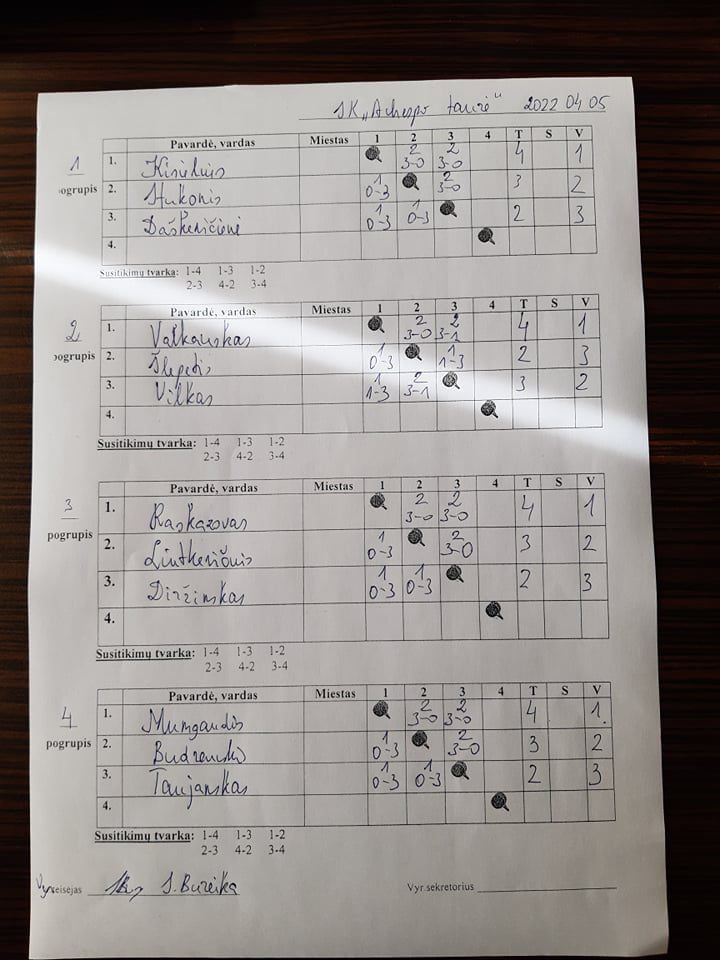 SK „Achespo taurė" 2022 04 05
1 pogrupis
Pavardė, vardas Miestas 1 2 3 4 T S V
1. 2 3-0 2 3-0 4 1
2. Stukonis 1 0-3 2 3-0 3 2
3. Daškevičienė 1 0-3 1 0-3 2 3
4.
Susitikimų tvarka: 1-4 1-3 1-2
2-3 4-2 3-4
2 pogrupis
Pavardė, vardas Miestas 1 2 3 4 T S V
1. Valkauskas 2 3-0 2 3-1 4 1
2. Šlepetis 1 0-3 1 1-3 2 3
3. Vilkas 1 1-3 2 3-1 3 2
4.
Susitikimų tvarka: 1-4 1-3 1-2
2-3 4-2 3-4
3 pogrupis
Pavardė, vardas Miestas 1 2 3 4 T S V
1. Raskazovas 2 3-0 2 3-0 4 1
2. Lintkevičonis 1 0-3 2 3-0 3 2
3. Diržinskas 1 0-3 1 0-3 2 3
4.
Susitikimų tvarka: 1-4 1-3 1-2
2-3 4-2 3-4
4 pogrupis
Pavardė, vardas Miestas 1 2 3 4 T S V
1. Mumgaudis 2 3-0 2 3-0 4 1.
2. 1 0-3 2 3-0 3 2
3. Taujanskas 1 0-3 1 0-3 2 3
4.
Susitikimų tvarka: 1-4 1-3 1-2
2-3 4-2 3-4
Vyr. teisėjas S. Bureika Vyr.sekretorius